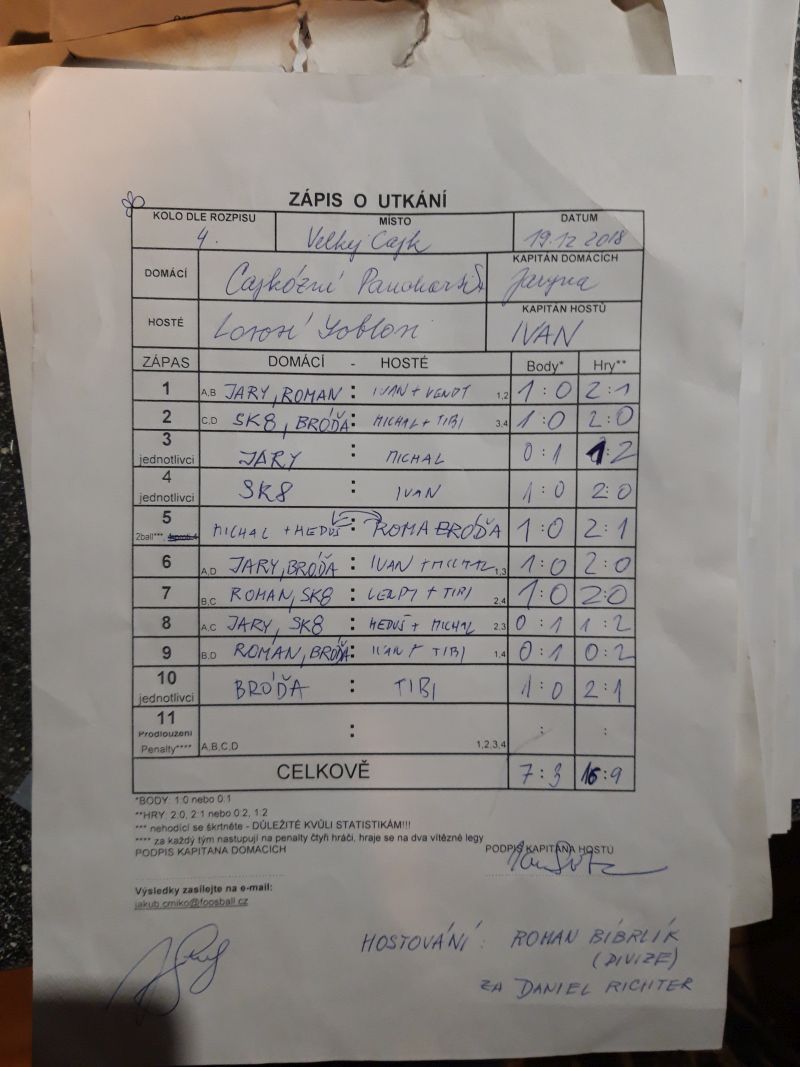 ZÁPIS O UTKÁNÍ
KOLO DLE ROZPISU MÍSTO DATUM
4. Velkej Cajk 19.12 2018
DOMÁCÍ Cajkózní KAPITÁN DOMÁCÍCH
Jaryna
HOSTÉ KAPITÁN HOSTŮ
IVAN
ZÁPAS DOMÁCÍ - HOSTÉ Body* Hry**
1 A,B JARY, ROMAN : IVAN + VENDY 1,2 1:0 2:1
2 C,D SK8, BRÓĎA : MICHAL + TIBI 3,4 1:0 2:0
3 jednotlivci JARY : MICHAL 0:1 1:2
4 jednotlivci SK8 : IVAN 1:0 2:0
5 2ball***, MICHAL + MEDUŠ : ROMA BRÓĎA 1:0 2:1
6 A,D JARY, BRÓĎA : IVAN + MICHAL 1,3 1:0 2:0
7 B,C ROMAN, SK8 : VENDY + TIBI 2,4 1:0 2:0
8 A,C JARY, SK8 : MEDUŠ + MICHAL 2,3 0:1 1:2
9 B,D ROMAN, BRÓĎA : IVAN + TIBI 1,4 0:1 0:2
10 jednotlivci BRÓĎA : TIBI 1:0 2:1
11
Prodloužení
Penalty**** A,B,C,D : 1,2,3,4 : :
CELKOVĚ 7:3 16:9
*BODY: 1:0 nebo 0:1
**HRY: 2:0, 2:1 nebo 0:2, 1:2
*** nehodící se škrtněte - DŮLEŽITÉ KVŮLI STATISTIKÁM!!!
**** za každý tým nastupují na penalty čtyři hráči, hraje se na dva vítězné legy
PODPIS KAPITÁNA DOMÁCÍCH PODPIS KAPITÁNA HOSTŮ
Výsledky zasílejte na e-mail:
jakub.crniko@foosball.cz
HOSTOVÁNÍ: ROMAN BIBRLÍK
(DIVIZE)
ZA DANIEL RICHTER